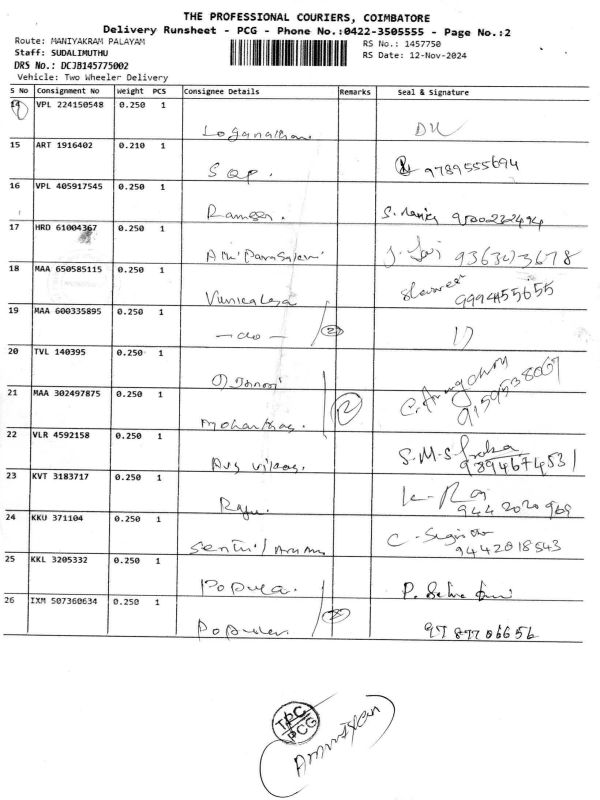 THE PROFESSIONAL COURIERS, COIMBATORE
Delivery Runsheet - PCG - Phone No.:0422-3505555 - Page No.:2
Route: MANIYAKRAM PALAYAM
RS No.: 1457750
Staff: SUDALIMUTHU
RS Date: 12-Nov-2024
DRS No.: DCJB145775002
Vehicle: Two Wheeler Delivery
S No Consignment No Weight PCS Consignee Details Remarks Seal & Signature
14 VPL 224150548 0.250 1
Loganathan
15 ART 1916402 0.210 1
9789555694
16 VPL 405917545 0.250 1
Ramesh.
17 HRD 61004367 0.250 1
18 MAA 650585115 0.250 1
9994455655
19 MAA 600335895 0.250 1
-do- 2
20 TVL 140395 0.250 1
21 MAA 302497875 0.250 1
2
Mohanthas. 9159538067
22 VLR 4592158 0.250 1
S.M.S
9894674531
23 KVT 3183717 0.250 1
Raju. K. Raj
944 2020 969
24 KKU 371104 0.250 1
Senthil C.
9442018543
25 KKL 3205332 0.250 1
Popular. P.
26 IXM 507360634 0.250 1
Popular 2 9787706656
TPC
PCG